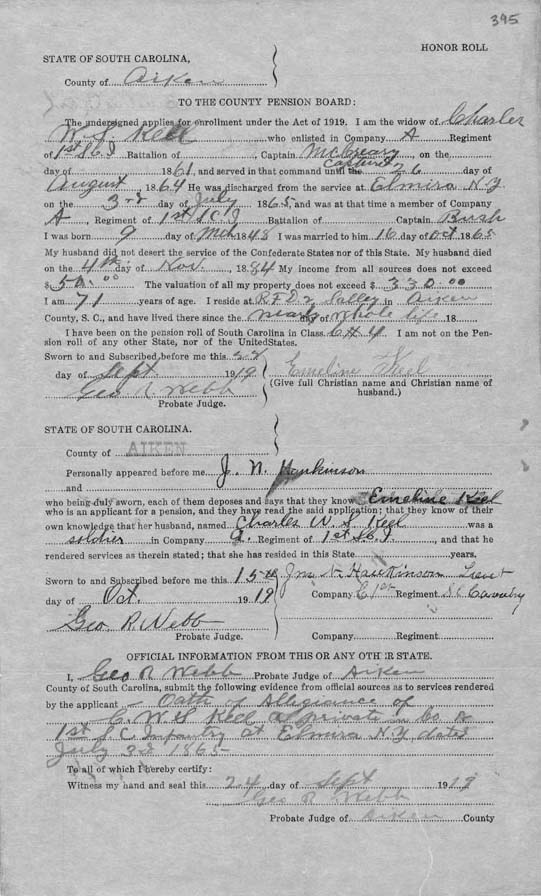 395
HONOR ROLL
STATE OF SOUTH CAROLINA,
County of Aiken
TO THE COUNTY PENSION BOARD:
The undersigned applies for enrollment under the Act of 1919. I am the widow of Charles
W. S. Keel who enlisted in Company A Regiment
of 1st S.C. I Battalion of , Captain McCreary, on the
day of 1861, and served in that command until the captured 26 day of
August, 1864 He was discharged from the service at Elmira N.Y
on the 3rd of July 1865, and was at that time a member of Company
A, Regiment of 1st S.C. I Battalion of Captain Bush
I was born 9 day of Mch 1848 I was married to him 16 day of Oct 1865
My husband did not desert the service of the Confederate States nor of this State. My husband died
on the 4th day of Nov., 1884 My income from all sources does not exceed
$50.00 The valuation of all my property does not exceed $330.00
I am 71 years of age. I reside at R.F.D. 2 Salley in Aiken
County, S. C., and have lived there since the nearly whole life 18
I have been on the pension roll of South Carolina in Class C # 4 I am not on the Pen-
sion roll of any other State, nor of the UnitedStates.
Sworn to and Subscribed before me this 22
day of Sept 1919 Emeline Keel
Geo R Webb (Give full Christian name and Christian name of
husband.)
Probate Judge.
STATE OF SOUTH CAROLINA.
County of AIKEN
Personally appeared before me J. N. Hankinson
and
who being duly sworn, each of them deposes and says that they know Emeline Keel
who is an applicant for a pension, and they have read the said application; that they know of their
own knowledge that her husband, named Charles W. S. Keel was a
soldier in Company A Regiment of 1st S.C. I, and that he
rendered services as therein stated; that she has resided in this State years.
Sworn to and Subscribed before me this 15th Jno N Hankinson Lieut
day of Oct. 1919 Company E 1st Regiment SC Cavalry
Geo. R. Webb
Probate Judge. Company Regiment
OFFICIAL INFORMATION FROM THIS OR ANY OTHER STATE.
I, Geo R Webb Probate Judge of Aiken
County of South Carolina, submit the following evidence from official sources as to services rendered
by the applicant Oath of Allegiance of
C. W. S Keel a private in Co A
1st S C Infantry at Elmira N.Y. dated
July 3d 1865
To all of which I hereby certify:
Witness my hand and seal this 24 day of Sept 1919
Geo R Webb
Probate Judge of Aiken County